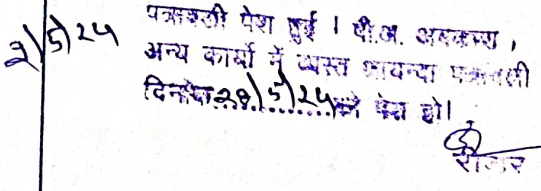 २।5।24
पत्रावली पेश हुई । पी.अ. अवकाश,
अन्य कार्यो में व्यस्त आयन्दा पत्रावली
दिनांक २९।5।24 को पेश हो।
रीडर